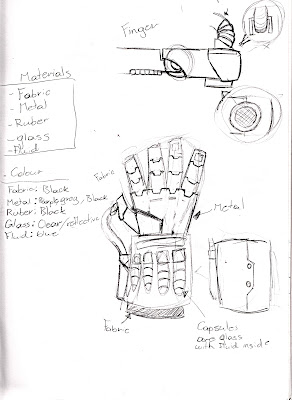 Finger
Materials
- Fabric
- Metal
- Ruber
- glass
- Fluid
. Colour
Fabric: Black
Metal: grey, Black
Ruber: Black
Glass: Clear/reflective
Fluid: blue
Fabric
Metal
Fabric
Capsules
are glass
with fluid inside